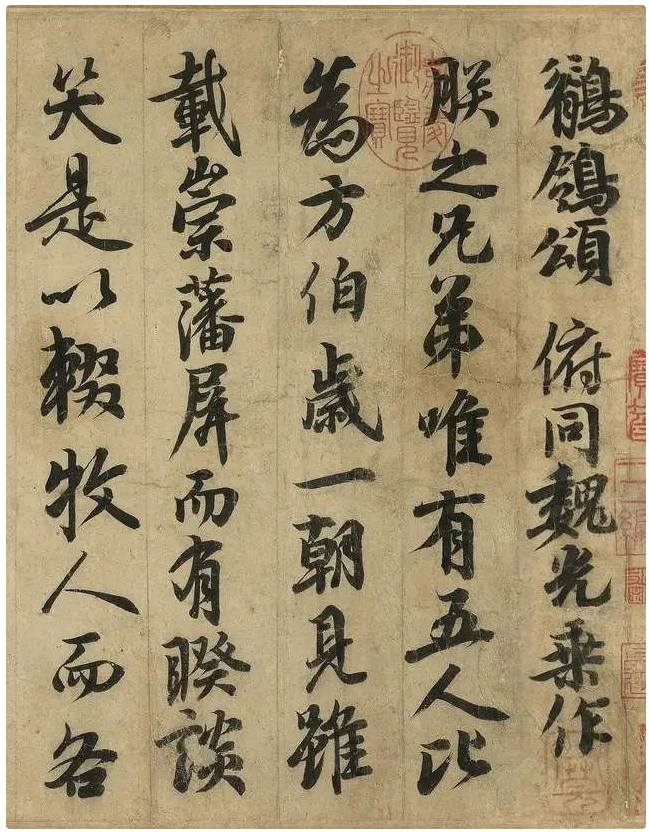 鶺鴒頌 俯同魏光乗作
朕之兄弟唯有五人比
為方伯歳一朝見雖
載崇藩屏而有睽談
笑是以輟牧人而各